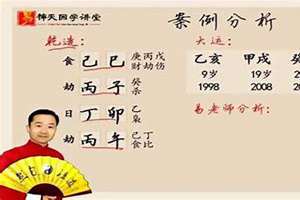 国学讲堂
案例分析
乾造:
食 己 巳 庚丙戊
财劫伤
劫 丙 子 癸
杀
日 丁 卯 乙
枭
劫 丙 午 己丁
食比
大运:
乙亥 甲戌
9岁 19岁 2
1998 2008 2
易老师分析: